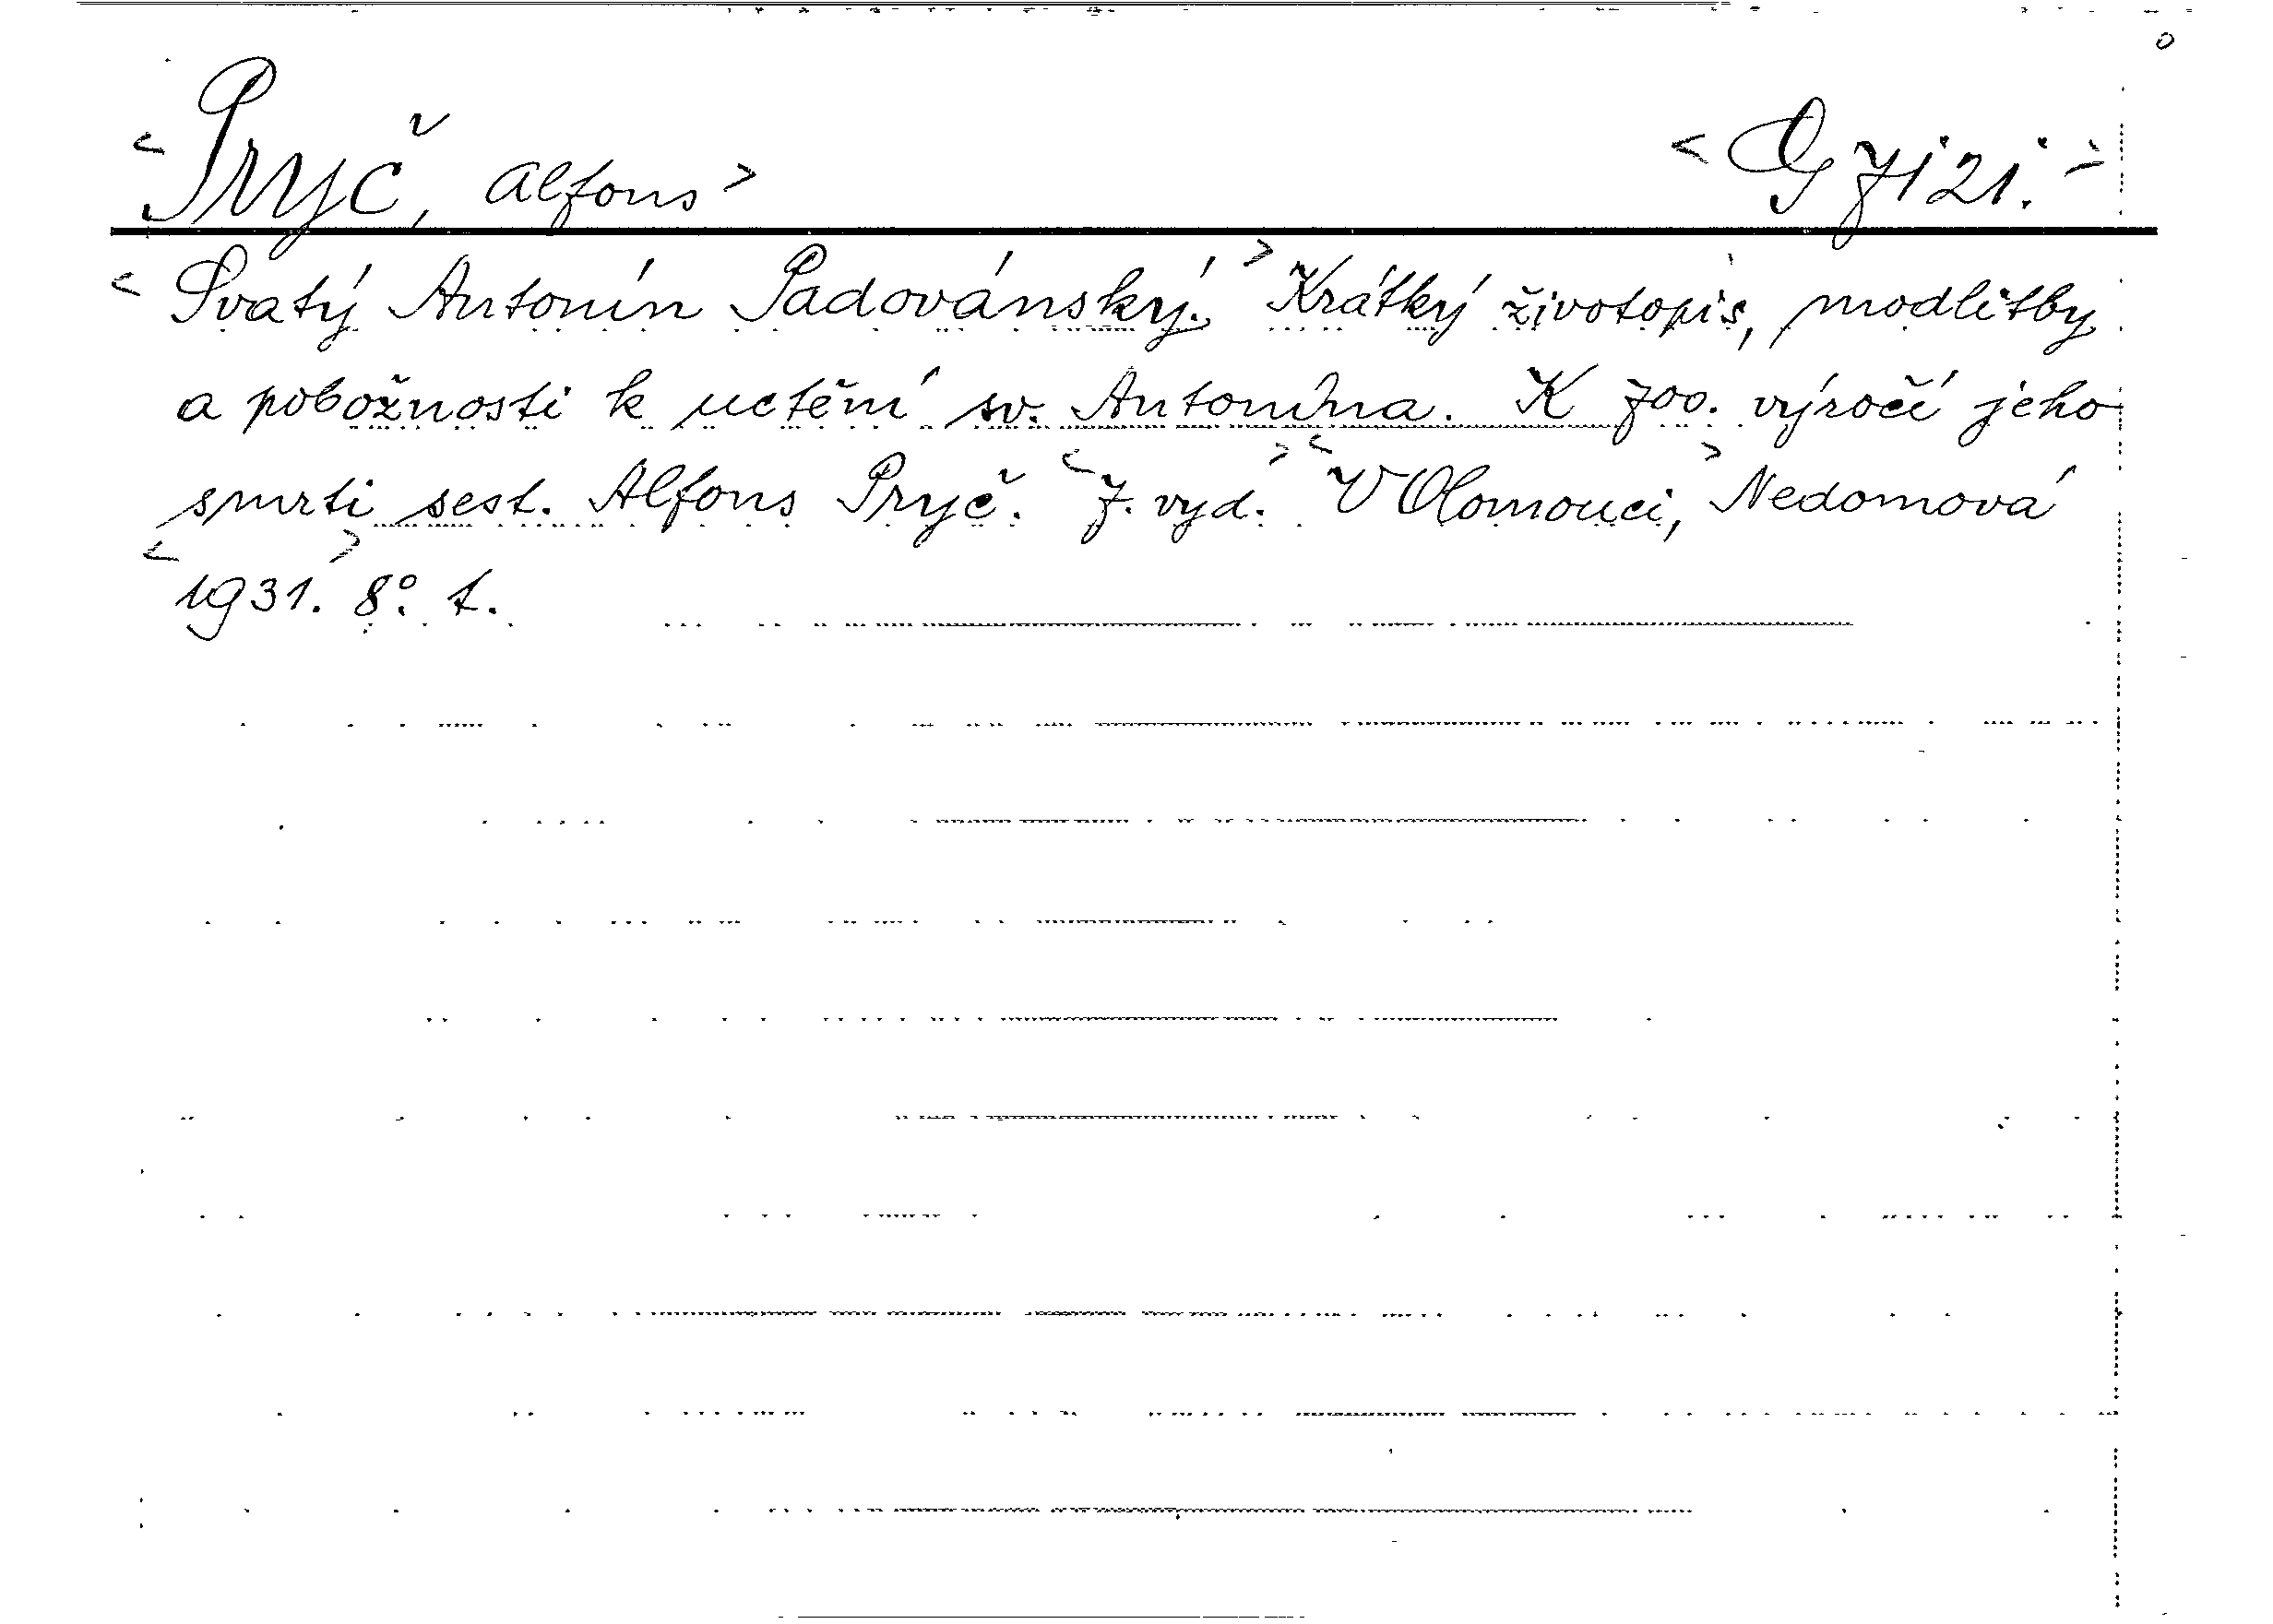 <Pryč, Alfons> <G 7121.>
<Svatý Antonín Padovánský.> Krátký životopis, modlitby
a pobožnosti k uctění sv. Antonína. K 700. výročí jeho
smrti sest. Alfons Pryč. <7. vyd.> <V Olomouci,> Nedomová
<1931.> 8°. t.